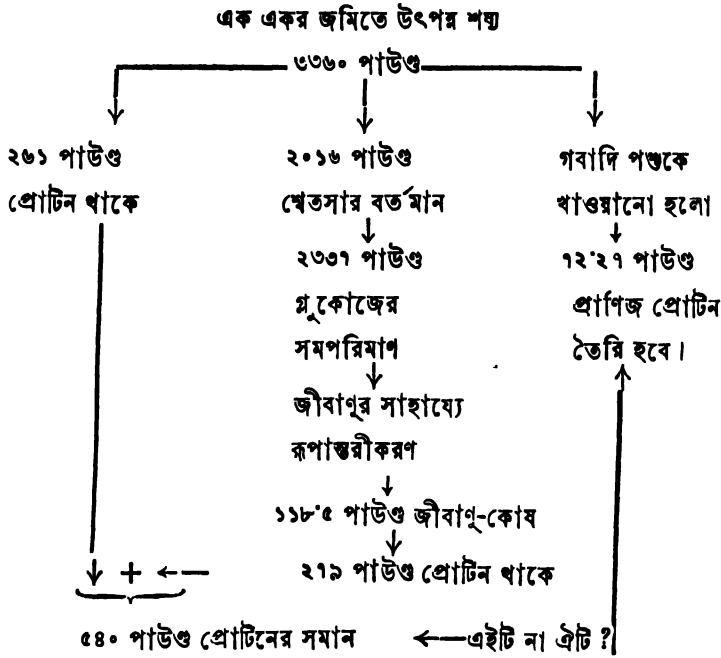 এক একর জমিতে উৎপন্ন শষ্য
৩৩৬০ পাউণ্ড
২৬১ পাউণ্ড
প্রোটিন থাকে
২০১৬ পাউণ্ড
শ্বেতসার বর্তমান
২৩৩৭ পাউণ্ড
গ্লুকোজের
সমপরিমাণ
জীবাণুর সাহায্যে
রূপান্তরীকরণ
১১৮·৫ পাউণ্ড জীবাণু-কোষ
২৭৯ পাউণ্ড প্রোটিন থাকে
গবাদি পশুকে
খাওয়ানো হলো
৭২·২৭ পাউণ্ড
প্রাণিজ প্রোটিন
তৈরি হবে।
+
৫৪০ পাউণ্ড প্রোটিনের সমান
এইটি না ঐটি?